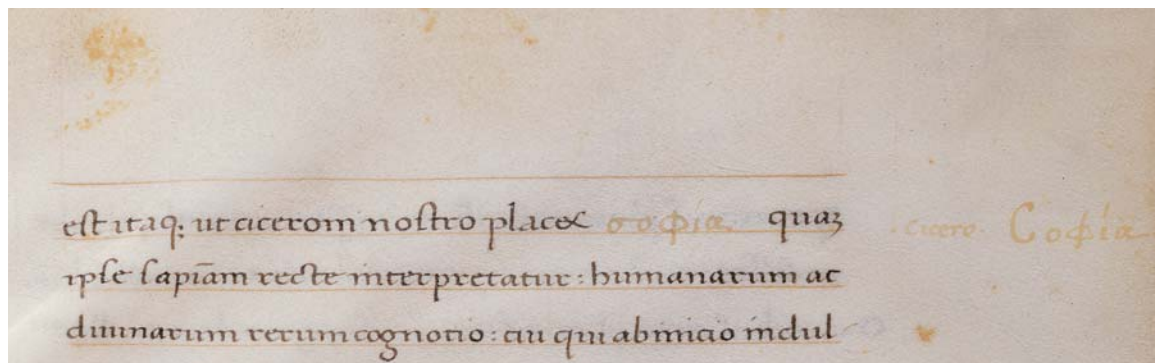 est itaq; ut ciceroni nostro placet σοφία quaȝ
ipse sapīam recte interpretatur : humanarum ac
diuinarum rerum cognotio : cui qui ab inicio indul
· cicero · Cοφία